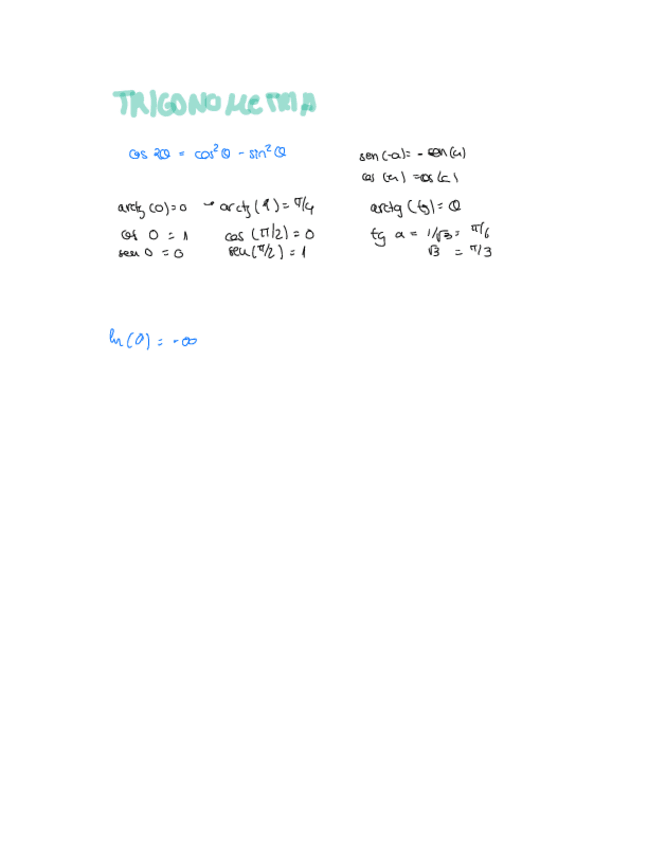 TRIGONOMETRIA
cos 2θ = cos²θ - sin²θ
sen(-a) = - sen(a)
cos(-a) = cos(a)
arctg(0)=0 → arctg(1)= π/4
arctg(tg) = θ
cos 0 = 1 cos(π/2) = 0
tg a = 1/√3 = π/6
sen 0 = 0 sen(π/2) = 1
√3 = π/3
ln(0) = -∞